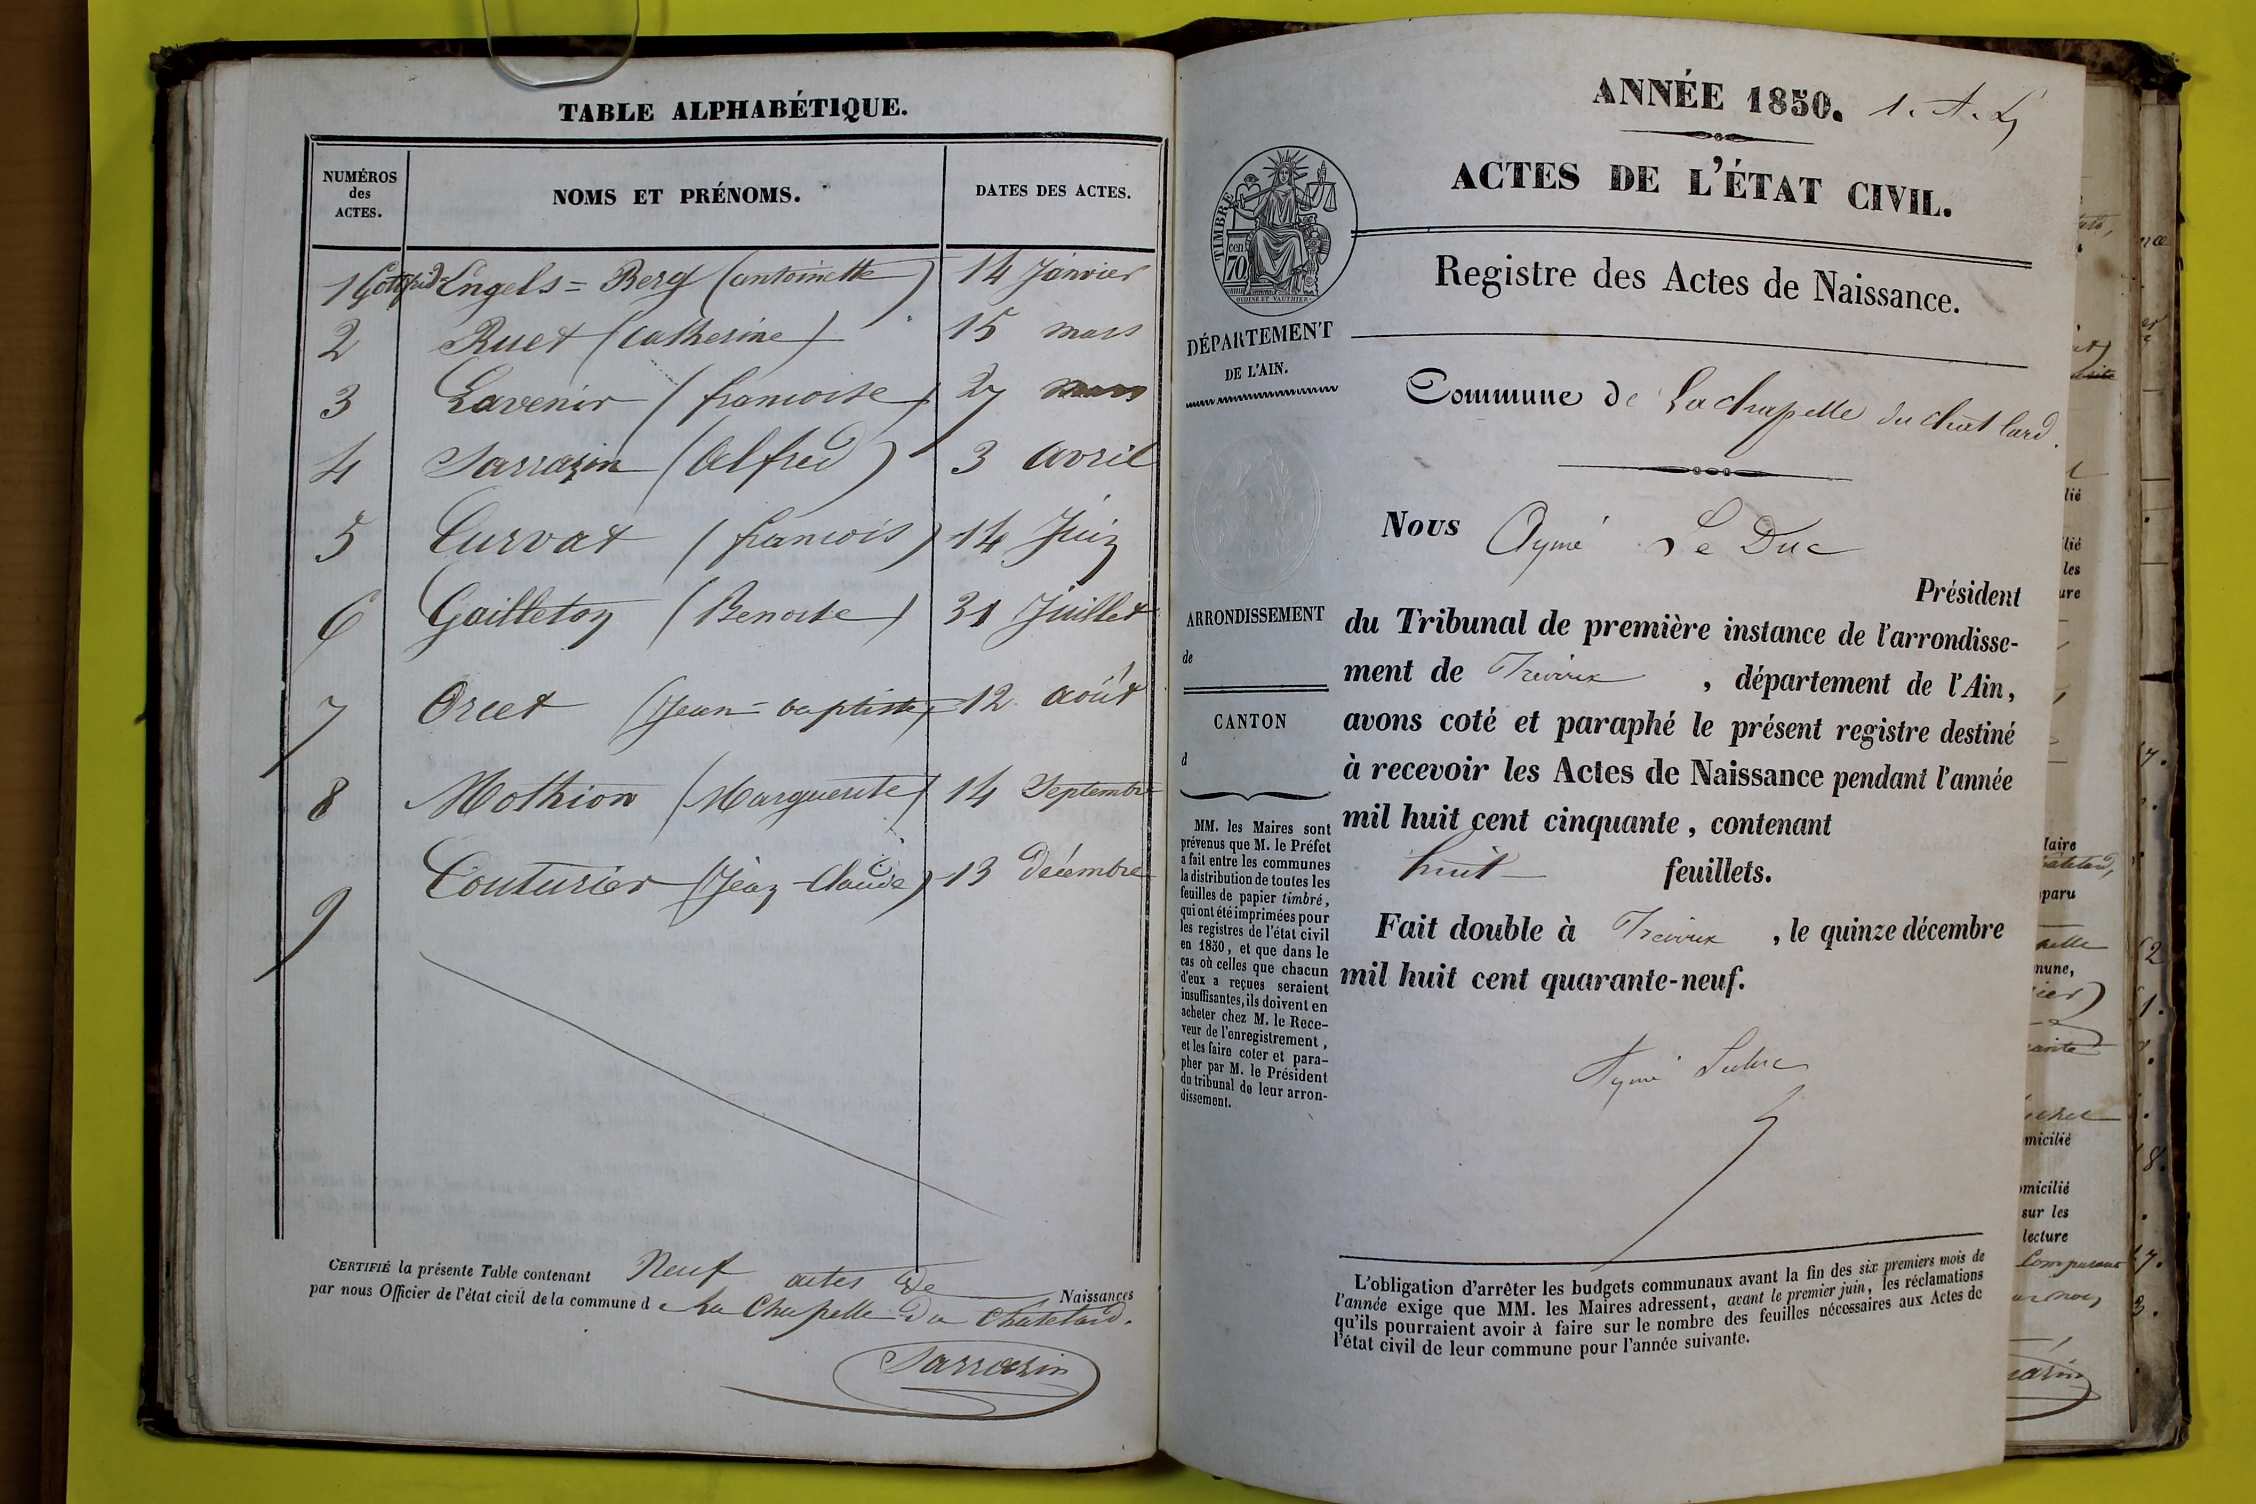 TABLE ALPHABÉTIQUE.
NUMÉROS
des
ACTES.
NOMS ET PRÉNOMS.
DATES DES ACTES.
1 Gottfrid Engels = Berg (antoinette) 14 Janvier
2 Ruet (Catherine) 15 mars
3 Lavenir (francoise) 27 mars
4 Sarrazin (Alfred) 3 avril
5 Curvat (francois) 14 Juin
6 Gailleton (Benoite) 31 Juillet
7 Orcet (Jean-baptiste) 12 août
8 Mothion (Marguerite) 14 Septembre
9 Couturier (Jean-Claude) 13 décembre
CERTIFIÉ la présente Table contenant Neuf actes de Naissances
par nous Officier de l'état civil de la commune d e La Chapelle Du Châtelard.
Sarrazin
ANNÉE 1850. 1. A. L
ACTES DE L'ÉTAT CIVIL.
TIMBRE
cen
70
OUDINÉ ET VAUTHIER
Registre des Actes de Naissance.
DÉPARTEMENT
DE L'AIN.
Commune de Lachapelle du chatelard.
Nous Aymé Le Duc
Président
du Tribunal de première instance de l'arrondisse-
ment de Trévoux , département de l'Ain,
avons coté et paraphé le présent registre destiné
à recevoir les Actes de Naissance pendant l'année
mil huit cent cinquante, contenant
huit feuillets.
Fait double à Trévoux , le quinze décembre
mil huit cent quarante-neuf.
Aymé Leduc
ARRONDISSEMENT
de
CANTON
d
MM. les Maires sont
prévenus que M. le Préfet
a fait entre les communes
la distribution de toutes les
feuilles de papier timbré,
qui ont été imprimées pour
les registres de l'état civil
en 1850, et que dans le
cas où celles que chacun
d'eux a reçues seraient
insuffisantes, ils doivent en
acheter chez M. le Rece-
veur de l'enregistrement,
et les faire coter et para-
pher par M. le Président
du tribunal de leur arron-
dissement.
L'obligation d'arrêter les budgets communaux avant la fin des six premiers mois de
l'année exige que MM. les Maires adressent, avant le premier juin, les réclamations
qu'ils pourraient avoir à faire sur le nombre des feuilles nécessaires aux Actes de
l'état civil de leur commune pour l'année suivante.
lié
lié
les
ure
laire
paru
mune,
micilié
omicilié
sur les
lecture
Comparant